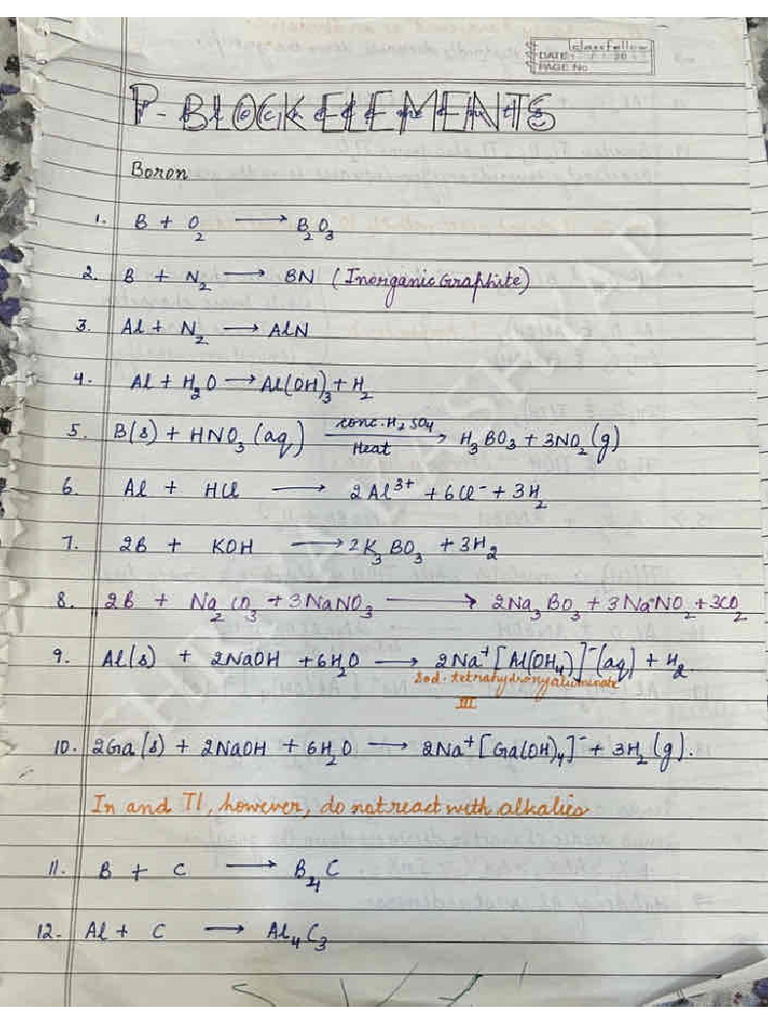 classfellow
DATE: 20
PAGE No
P-BLOCK ELEMENTS
Boron
1. B + O₂ ⟶ B₂O₃
2. B + N₂ ⟶ BN (Inorganic Graphite)
3. Al + N₂ ⟶ AlN
4. Al + H₂O ⟶ Al(OH)₃ + H₂
5. B(s) + HNO₃ (aq) conc. H₂SO₄ ⟶ Heat H₃BO₃ + 3NO₂ (g)
6. Al + HCl ⟶ 2Al³⁺ + 6Cl⁻ + 3H₂
7. 2B + KOH ⟶ 2K₃BO₃ + 3H₂
8. 2B + Na₂CO₃ + 3NaNO₃ ⟶ 2Na₃BO₃ + 3NaNO₂ + 3CO₂
9. Al(s) + 2NaOH + 6H₂O ⟶ 2Na⁺[Al(OH₄)]⁻(aq) + H₂.
Sod. tetrahydroxyaluminate
III
10. 2Ga(s) + 2NaOH + 6H₂O ⟶ 2Na⁺[Ga(OH)₄]⁻ + 3H₂(g).
In and Tl, however, do not react with alkalies
11. B + C ⟶ B₄C
12. Al + C ⟶ Al₄C₃